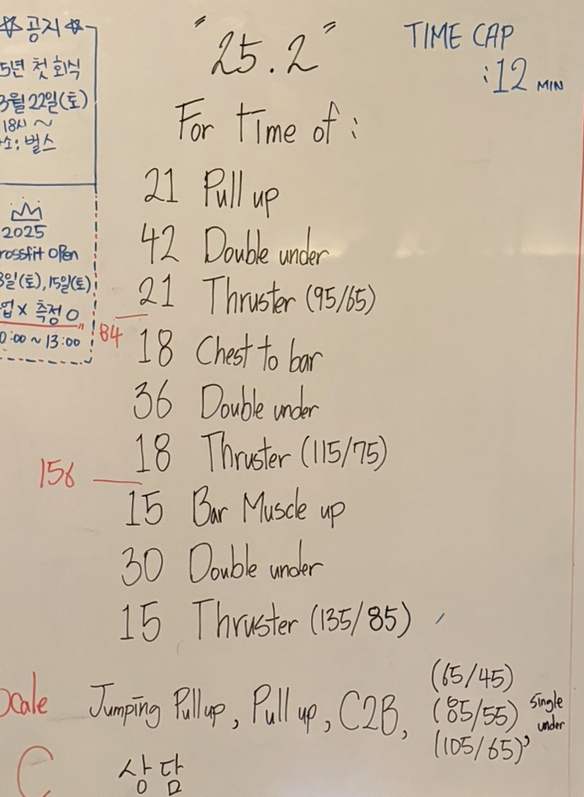 ☆공지☆
5년 첫 회식
3월 22일(토)
18시 ~
소: 벌스
2025
rossfit Open
8일(토), 15일(토)
업 x 측정 O
0:00 ~ 13:00
"25.2"
TIME CAP
:12 MIN
For Time of :
21 Pull up
42 Double under
21 Thruster (95/65)
84
18 Chest to bar
36 Double under
18 Thruster (115/75)
156
15 Bar Muscle up
30 Double under
15 Thruster (135/85)
Scale Jumping Pull up, Pull up, C2B,
(65/45)
(85/55)
(105/65),
single
under
C 상담